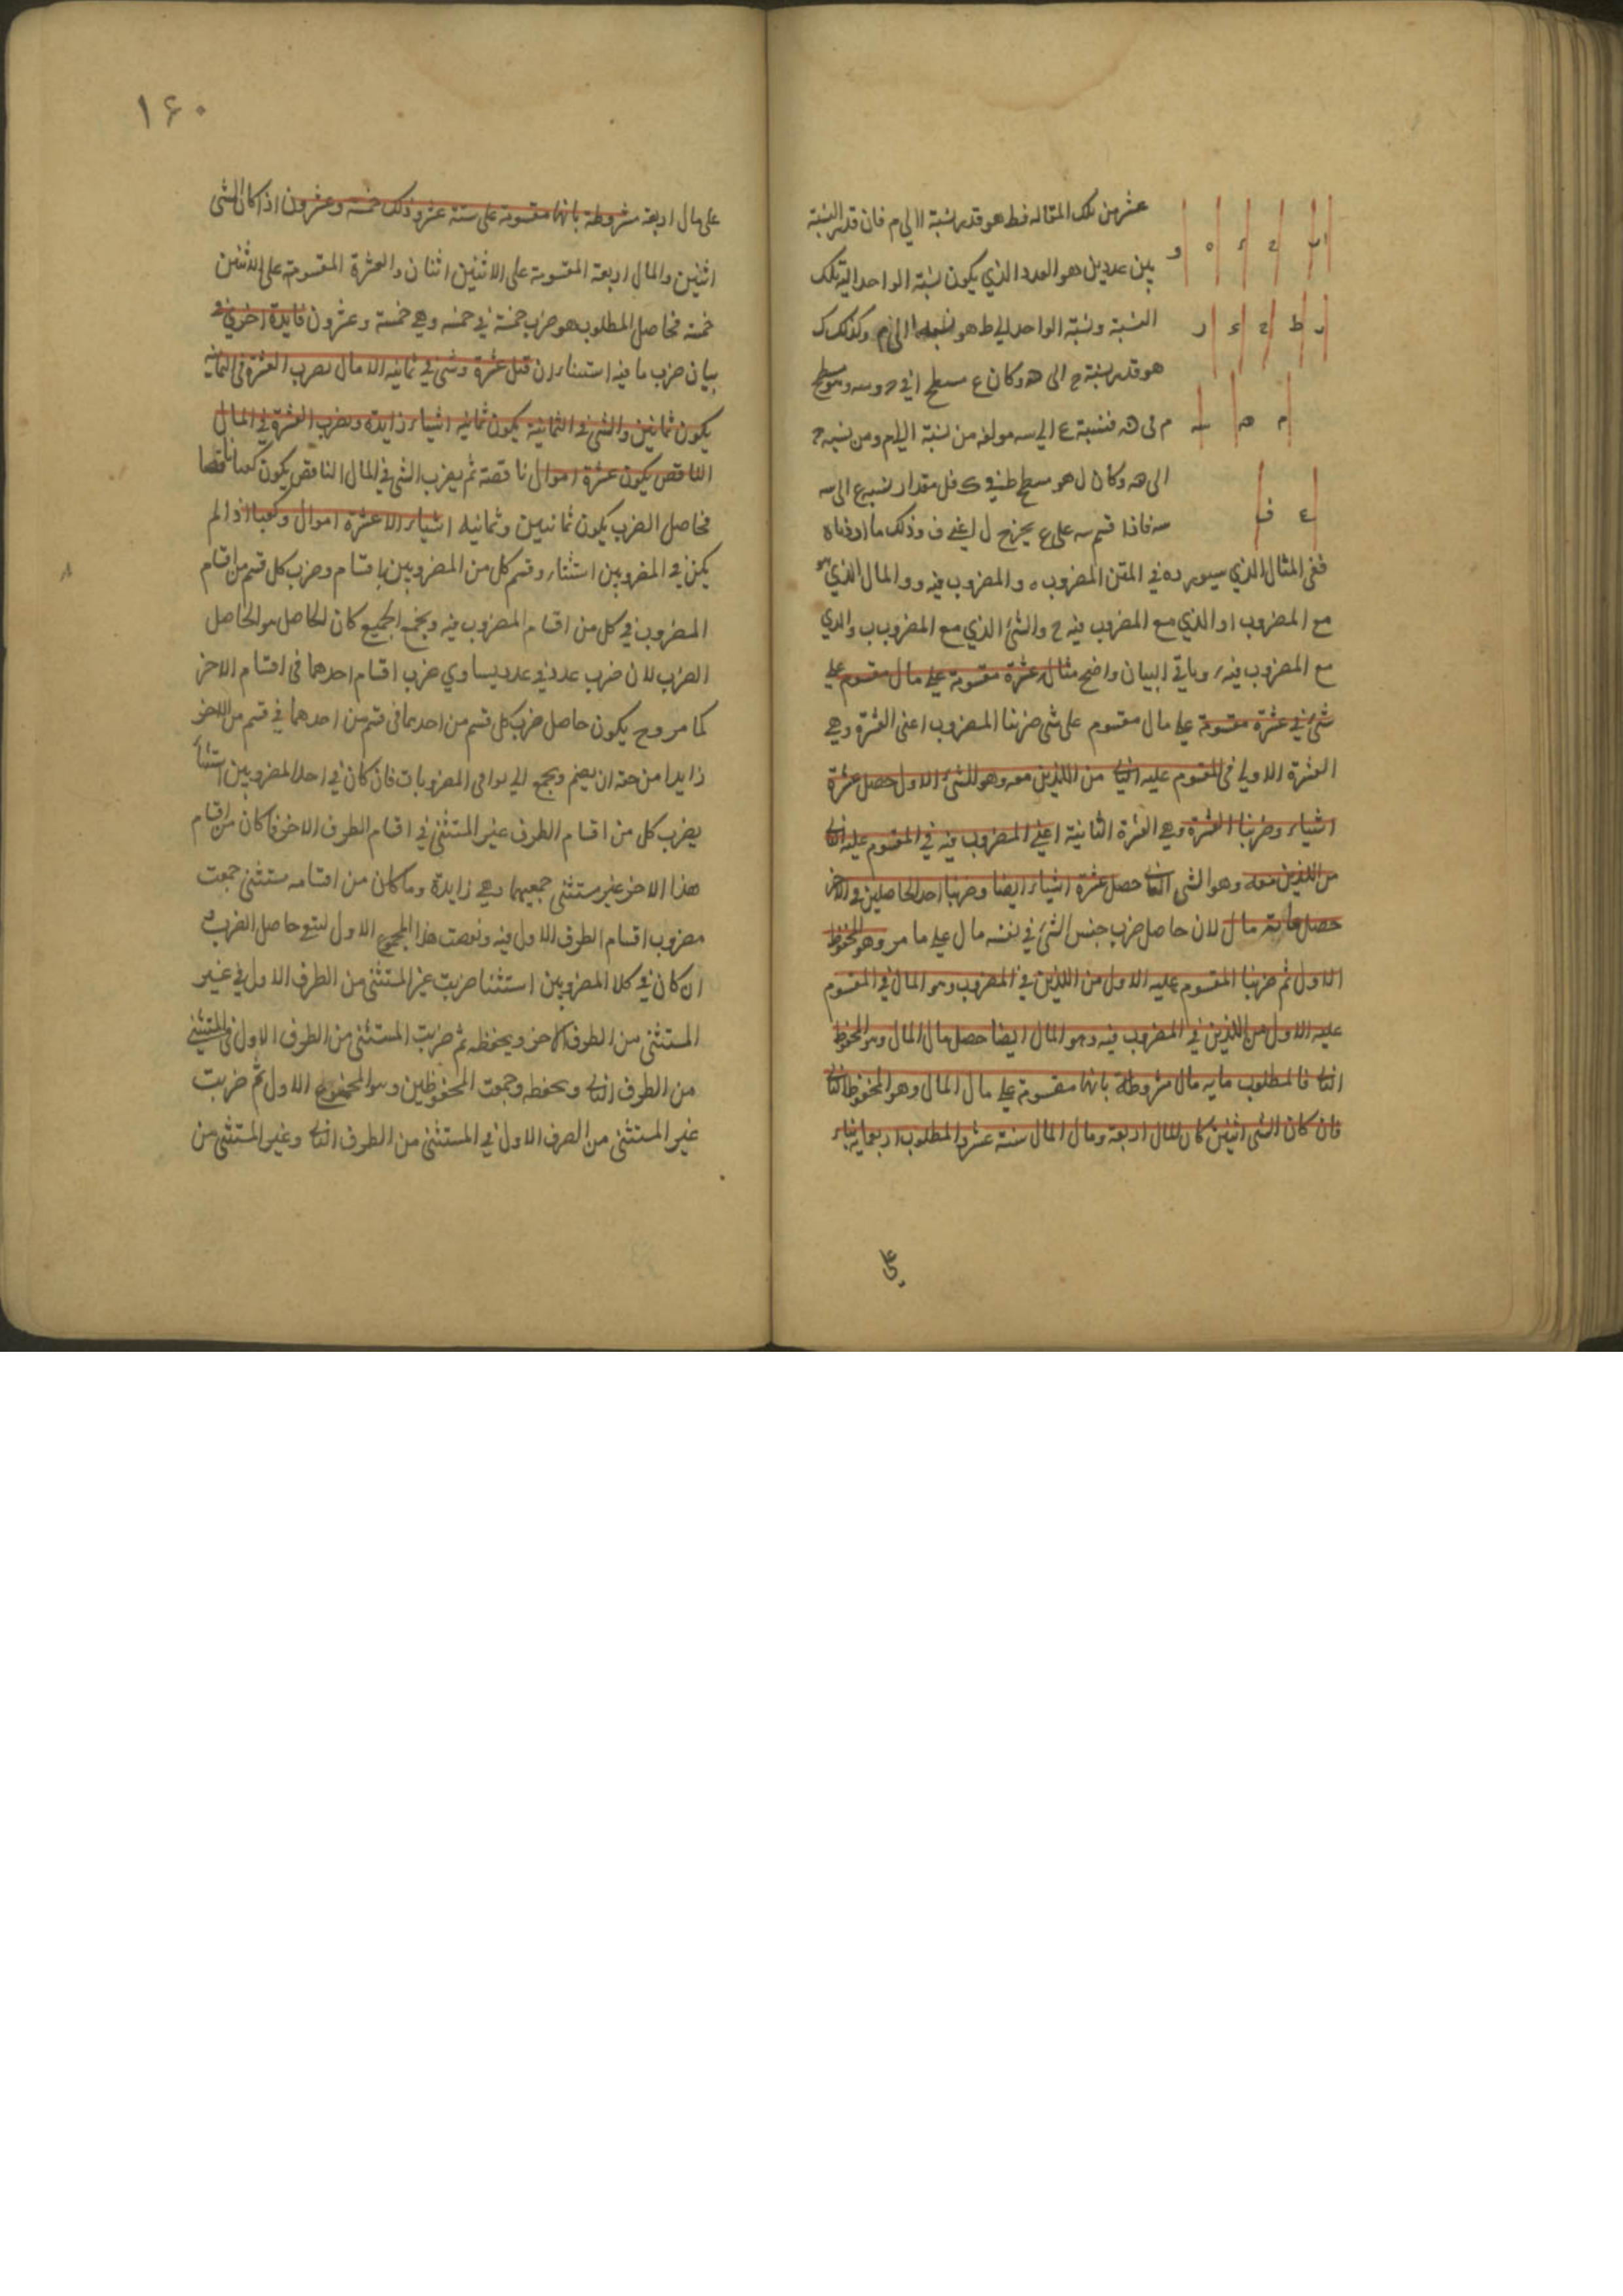 عشر من تلك المقاله فط هو قدر نسبة ا الي م فان قدر النسبة
بين عددين هو العدد الذي يكون نسبة الواحد اليه تلك
النسبة ونسبة الواحد الي ط هو الي م وكذلك ك
هو قدر نسبة ح الى هه وكان ع مسطح ا في ح وسه هو مسطح
م في هه فنسبة ع الي سه مولفه من نسبة ا اليم ومن نسبه ح
الى هه وكان ل هو مسطح ط في ك فل مقدار نسبه ع الى سه
سه فاذا قسم سه على ع يخرج ل اعني ف وذلك ما اردناه
ا ب ح د ه و
ر ط ح ع ر
م هه سه
ع ف
ففى المثال الذي سيورده في المتن المضروب ه والمضروب فيه و والمال الذي هو
مع المضروب ا والذي مع المضروب فيه ح والشئ الذي مع المضروب ب والذي
مع المضروب فيه ر وباقي البيان واضح مثال عشرة مقسومة على مال مقسوم على
شئ في عشرة مقسومة على مال مقسوم على شى ضربنا المضروب اعنى العشرة وهي
العشرة الاولي فى المقسوم عليه الثاني من اللذين معه وهو الشئ الاول حصل عشرة
اشياء وضربنا العشرة وهي العشرة الثانية اعني المضروب فيه في المقسوم عليه الثاني
من اللذين معه وهو الشى الثاني حصل عشرة اشياء ايضا وضربنا احد الحاصلين في الاخر
حصل مائة مال لان حاصل ضرب جنس الشئ في نفسه مال على ما مر وهو المحفوظ
الاول ثم ضربنا المقسوم عليه الاول من اللذين في المضروب وهو المال في المقسوم
عليه الاول من اللذين في المضروب فيه وهو المال ايضا حصل مال المال وهو المحفوظ
الثاني فالمطلوب مايه مال مشروطة بانها مقسومة على مال المال وهو المحفوظ الثاني
فان كان الشى اثنين كان المال اربعة ومال المال ستة عشر والمطلوب اربعمايه بناء
على
١۶٠
على مال اربعة مشروطة بانها مقسومة على ستة عشر وذلك خمسة وعشرون اذا كان الشى
اثنين والمال اربعة المقسومة على الاثنين اثنان والعشرة المقسومة على الاثنين
خمسة فحاصل المطلوب هو ضرب خمسة في خمسه وهي خمسة وعشرون فايدة اخرى في
بيان ضرب ما فيه استثناء ان قيل عشرة وشى في ثمانيه الا مال يضرب العشرة فى الثمانيه
يكون ثمانين والشى في الثمانية يكون ثمانيه اشياء زايدة ويضرب العشرة في المال
الناقص يكون عشرة اموال ناقصة ثم يضرب الشى في المال الناقص يكون كعبا ناقصا
فحاصل الضرب يكون ثمانيين وثمانيه اشياء الا عشرة اموال وكعبا اذا لم
يكن في المضروبين استثناء وقسم كل من المضروبين باقسام وضرب كل قسم من اقسام
المضروب في كل من اقسام المضروب فيه ويجمع الجميع كان الحاصل هو الحاصل
الضرب لان ضرب عدد في عدد يساوي ضرب اقسام احدهما فى اقسام الاخر
كما مر وح يكون حاصل ضرب كل قسم من احدهما فى قسم من احدهما في قسم من الاخر
زايدا من حقه ان يضم ويجمع الي بواقى المضروبات فان كان في احد المضروبين استثناء
يضرب كل من اقسام الطرف غير المستثنى في اقسام الطرف الاخر فما كان من اقسام
هذا الاخر غير مستثنى جمعها وهي زايدة وما كان من اقسامه مستثنى جمعت
مضروب اقسام الطرف الاول فيه ونقصت هذا المجموع الاول لتبقى حاصل الضرب و
ان كان في كلا المضروبين استثنا ضربت غير المستثنى من الطرف الاول في غير
المستثنى من الطرف الاخر ويحفظه ثم ضربت المستثنى من الطرف الاول فى المستثنى
من الطرف الثاني ويحفظه وجمعت المحفوظين وهو المحفوظ الاول ثم ضربت
غير المستثنى من الصرف الاول في المستثنى من الطرف الثاني وغير المستثنى من